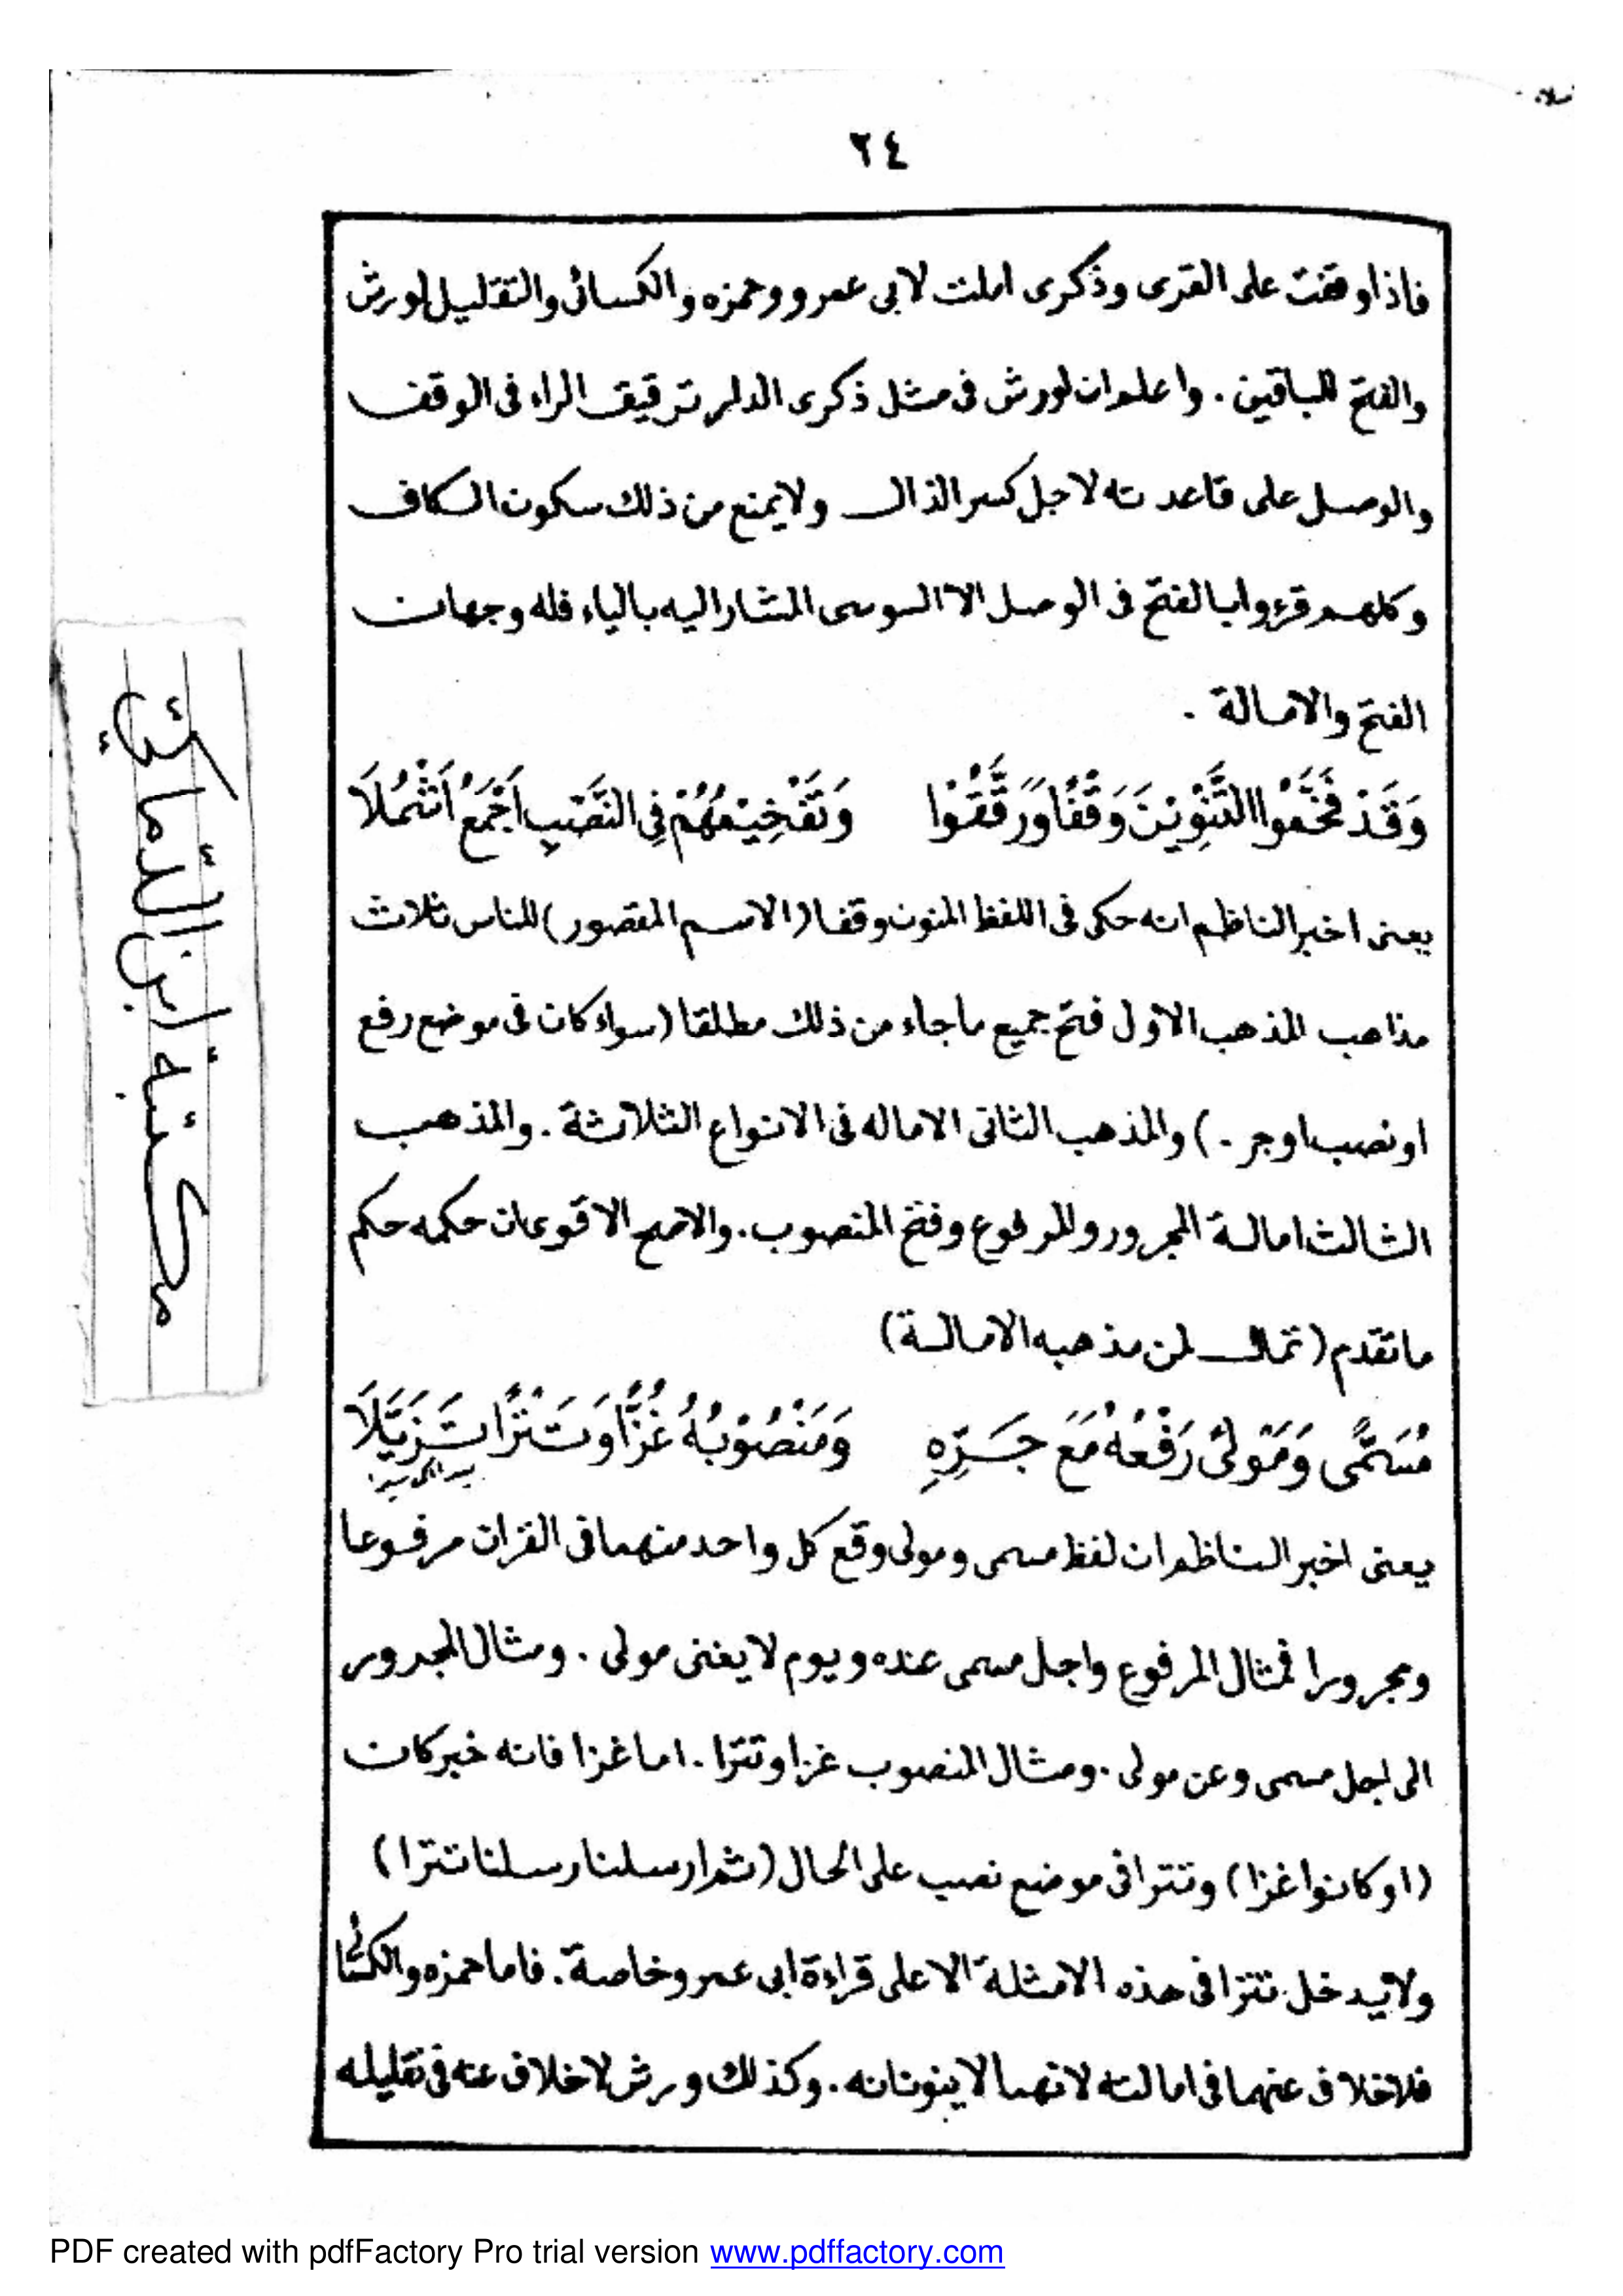 ٢٤
فاذا وقفت على القرى وذكرى املت لابى عمرو وحمزه والكسائى والتقليل لورش
والفتح للباقين . واعلم ان لورش فى مثل ذكرى الدار ترقيق الراء فى الوقف
والوصل على قاعدته لاجل كسر الذال ولا يمنع من ذلك سكون الكاف
وكلهم قرءوا بالفتح فى الوصل الا السوسى المشار اليه بالياء فله وجهان
الفتح والامالة .
وَقَدْ فَخَّمُوا التَّنْوِيْنَ وَقْفًا وَرَقَّقُوْا وَتَفْخِيْمُهُمْ فِى النَّصْبِ اَجْمَعُ اَشْمُلَا
يعنى اخبر الناظم انه حكى فى اللفظ المنون وقفا (الاسم المقصور) للناس ثلاث
مذاهب المذهب الاول فتح جميع ما جاء من ذلك مطلقا (سواء كان فى موضع رفع
او نصب او جر .) والمذهب الثانى الاماله فى الانواع الثلاثة . والمذهب
الثالث امالة المجرور والمرفوع وفتح المنصوب . والاصح الاقوى ان حكمه حكم
ما تقدم (تمال لمن مذهبه الامالة)
مُسَمًّى وَمَوْلًى رَفْعُهُ مَعَ جَرِّهِ وَمَنْصُوْبُهُ غُزًّا وَتَتْرًا تَزَيَّلَا
يعنى اخبر الناظم ان لفظ مسمى ومولى وقع كل واحد منهما فى القران مرفوعا
ومجرورا فمثال المرفوع واجل مسمى عنده ويوم لا يغنى مولى . ومثال المجرور
الى اجل مسمى وعن مولى . ومثال المنصوب غزا وتترا . اما غزا فانه خبر كان
(او كانوا غزا) وتترا فى موضع نصب على الحال (ثم ارسلنا رسلنا تترا)
ولا يدخل تترا فى هذه الامثلة الا على قراءة ابى عمرو خاصة . فاما حمزه والكسائى
فلا خلاف عنهما فى امالته لانهما لا ينونانه . وكذلك ورش لا خلاف عنه فى تقليله
مكتبة ابن الدماك
PDF created with pdfFactory Pro trial version www.pdffactory.com